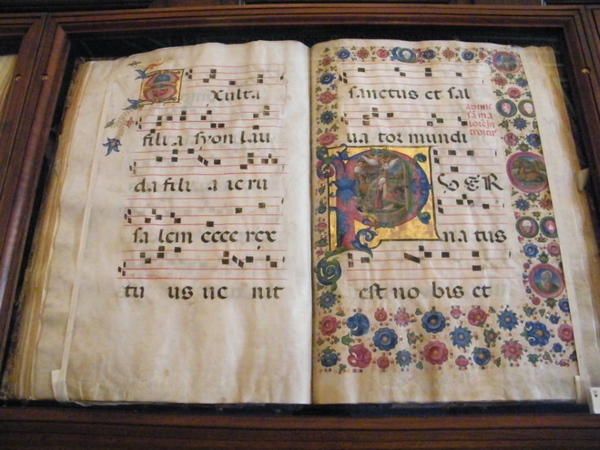 Exulta
fili a syon lau
da fili a ie ru
sa lem ecce rex
tu us ue nit
sanctus et sal
ua tor mundi
PVER
na tus
est no bis et